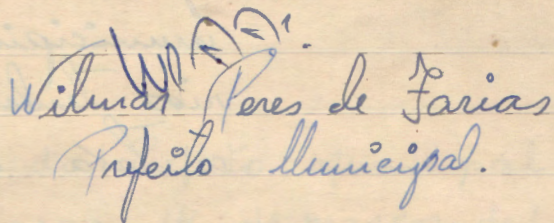 Wilmar Peres de Farias
Prefeito Municipal.